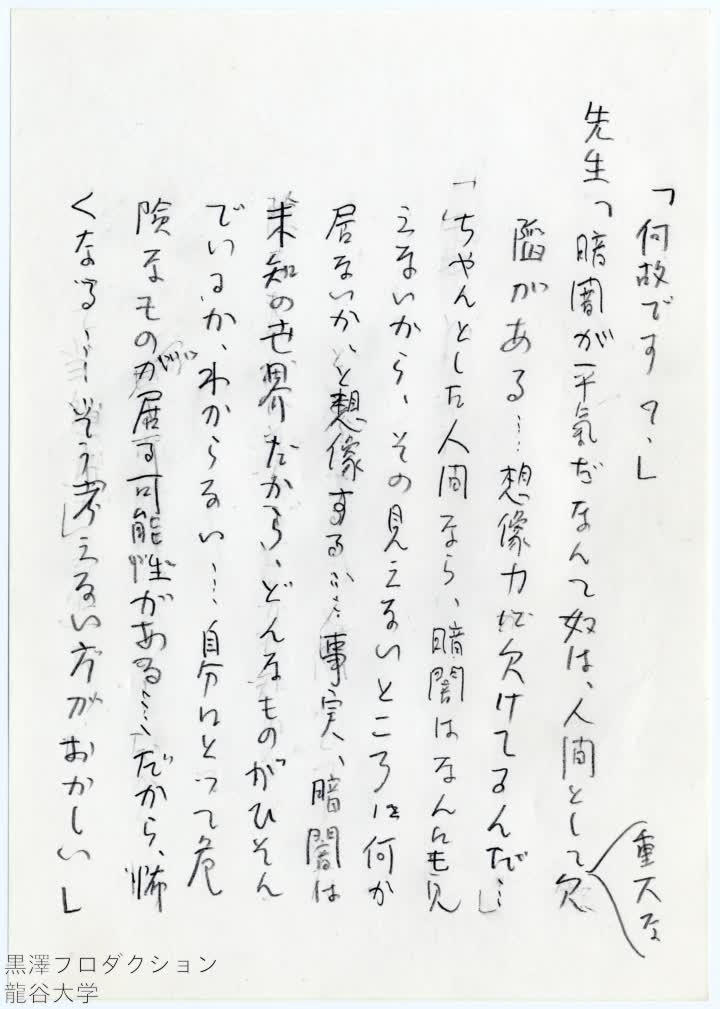 「何故です?」
先生「暗闇が平氣だなんて奴は、人間として欠
重大な
陥がある…想像力が欠けてるんだ…」
「ちやんとした人間なら、暗闇はなんにも見
えないから、その見えないところに何か
居ないか、と想像する……事実、暗闇は
未知の世界だから、どんなものがひそん
でいるか、わからない…自分にとって危
険なものが居る可能性がある…だから、怖
くなる……そう考えない方がおかしい」
黒澤プロダクション
龍谷大学